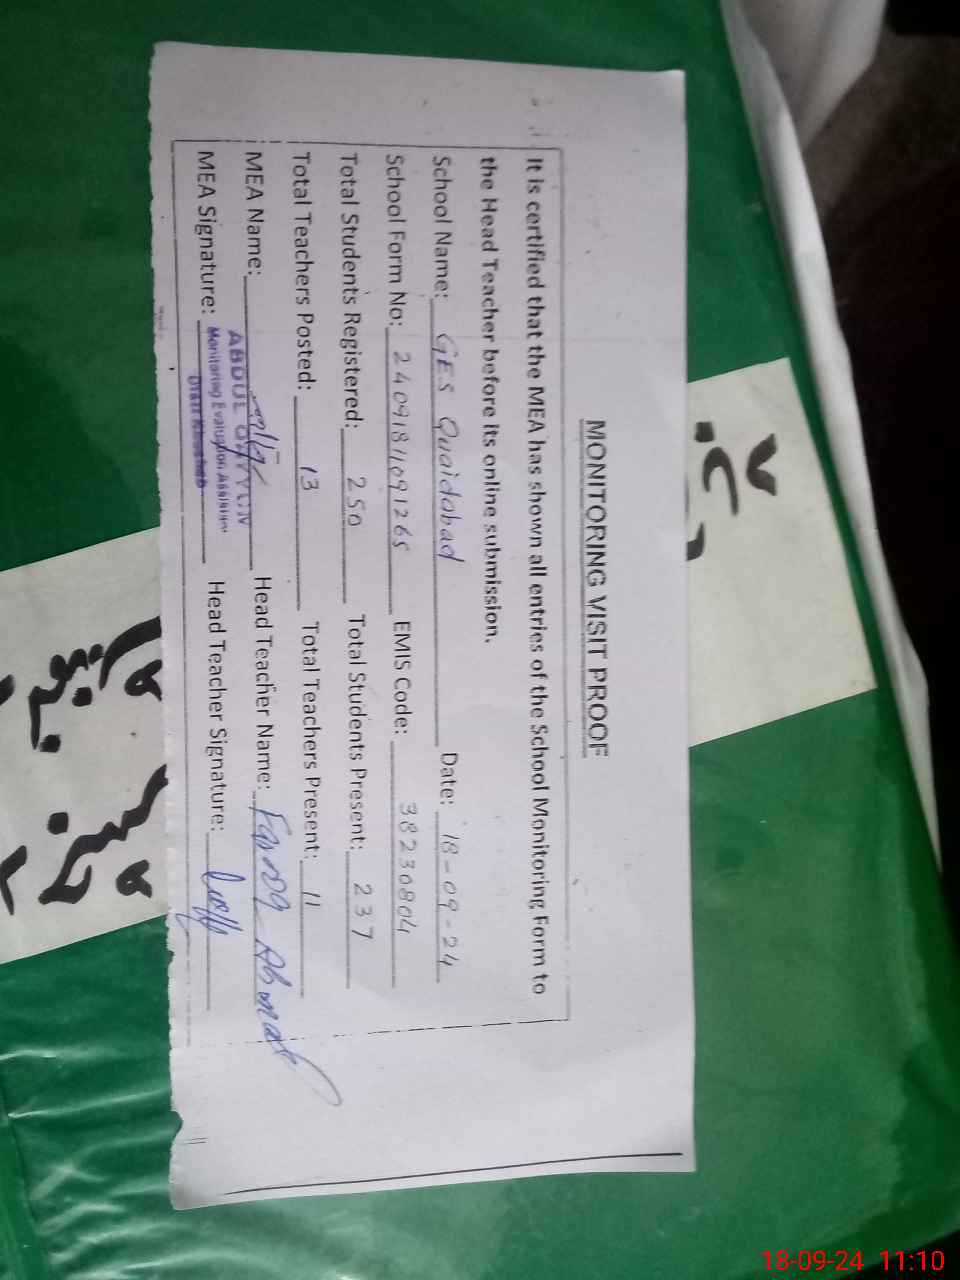 MONITORING VISIT PROOF
It is certified that the MEA has shown all entries of the School Monitoring Form to
the Head Teacher before its online submission.
School Name: GES Quaidabad Date: 18-09-24
School Form No: 2409181091265 EMIS Code: 38230804
Total Students Registered: 250 Total Students Present: 237
Total Teachers Posted: 13 Total Teachers Present: 11
MEA Name: ABDUL QAYYUM Head Teacher Name: Farooq Ahmad
Monitoring Evaluation Assistant
MEA Signature: Head Teacher Signature:
18-09-24 11:10